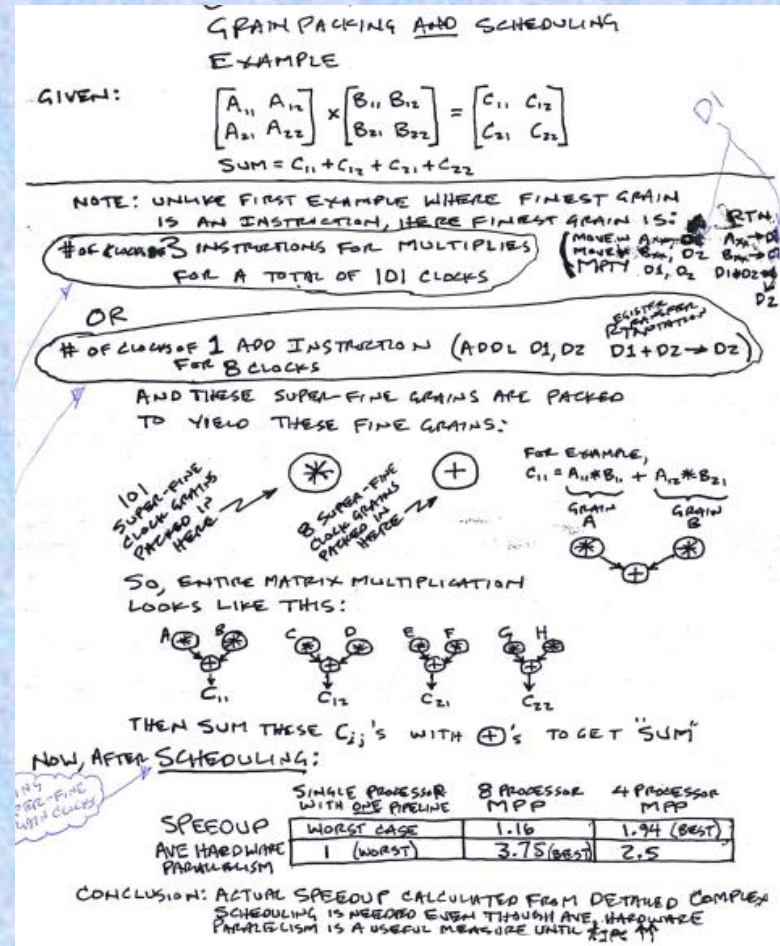 GRAIN PACKING AND SCHEDULING
EXAMPLE
GIVEN:
[A₁₁ A₁₂] × [B₁₁ B₁₂] = [C₁₁ C₁₂]
[A₂₁ A₂₂] [B₂₁ B₂₂] [C₂₁ C₂₂]
SUM = C₁₁ + C₁₂ + C₂₁ + C₂₂
D1
NOTE: UNLIKE FIRST EXAMPLE WHERE FINEST GRAIN
IS AN INSTRUCTION, HERE FINEST GRAIN IS:
RTN
# OF CLOCKS 3 INSTRUCTIONS FOR MULTIPLIES
FOR A TOTAL OF 101 CLOCKS
MOVE.W Axx, Axx →
Bxx, D2 Bxx →
MPTY D1, D2 D1*D2
D2
OR
# OF CLOCKS OF 1 ADD INSTRUCTION (ADDL D1, D2 D1+D2 → D2)
FOR 8 CLOCKS
REGISTER
TRANSFER
RTNOTATION
AND THESE SUPER-FINE GRAINS ARE PACKED
TO YIELD THESE FINE GRAINS:
101
SUPER-FINE
CLOCK GRAINS
PACKED IN
HERE
*
8 SUPER-FINE
CLOCK GRAINS
PACKED IN
HERE
+
FOR EXAMPLE,
C₁₁ = A₁₁*B₁₁ + A₁₂*B₂₁
GRAIN GRAIN
A B
* *
+
SO, ENTIRE MATRIX MULTIPLICATION
LOOKS LIKE THIS:
A * B * C * D * E * F * G * H *
+ + + +
C₁₁ C₁₂ C₂₁ C₂₂
THEN SUM THESE Cᵢⱼ'S WITH ⊕'s TO GET "SUM"
NOW, AFTER SCHEDULING:
SINGLE PROCESSOR 8 PROCESSOR 4 PROCESSOR
WITH ONE PIPELINE MPP MPP
SPEEDUP WORST CASE 1.16 1.94 (BEST)
AVE HARDWARE 1 (WORST) 3.75 (BEST) 2.5
PARALLELISM
CONCLUSION: ACTUAL SPEEDUP CALCULATED FROM DETAILED COMPLEX
SCHEDULING IS NEEDED EVEN THOUGH AVE. HARDWARE
PARALLELISM IS A USEFUL MEASURE UNTIL